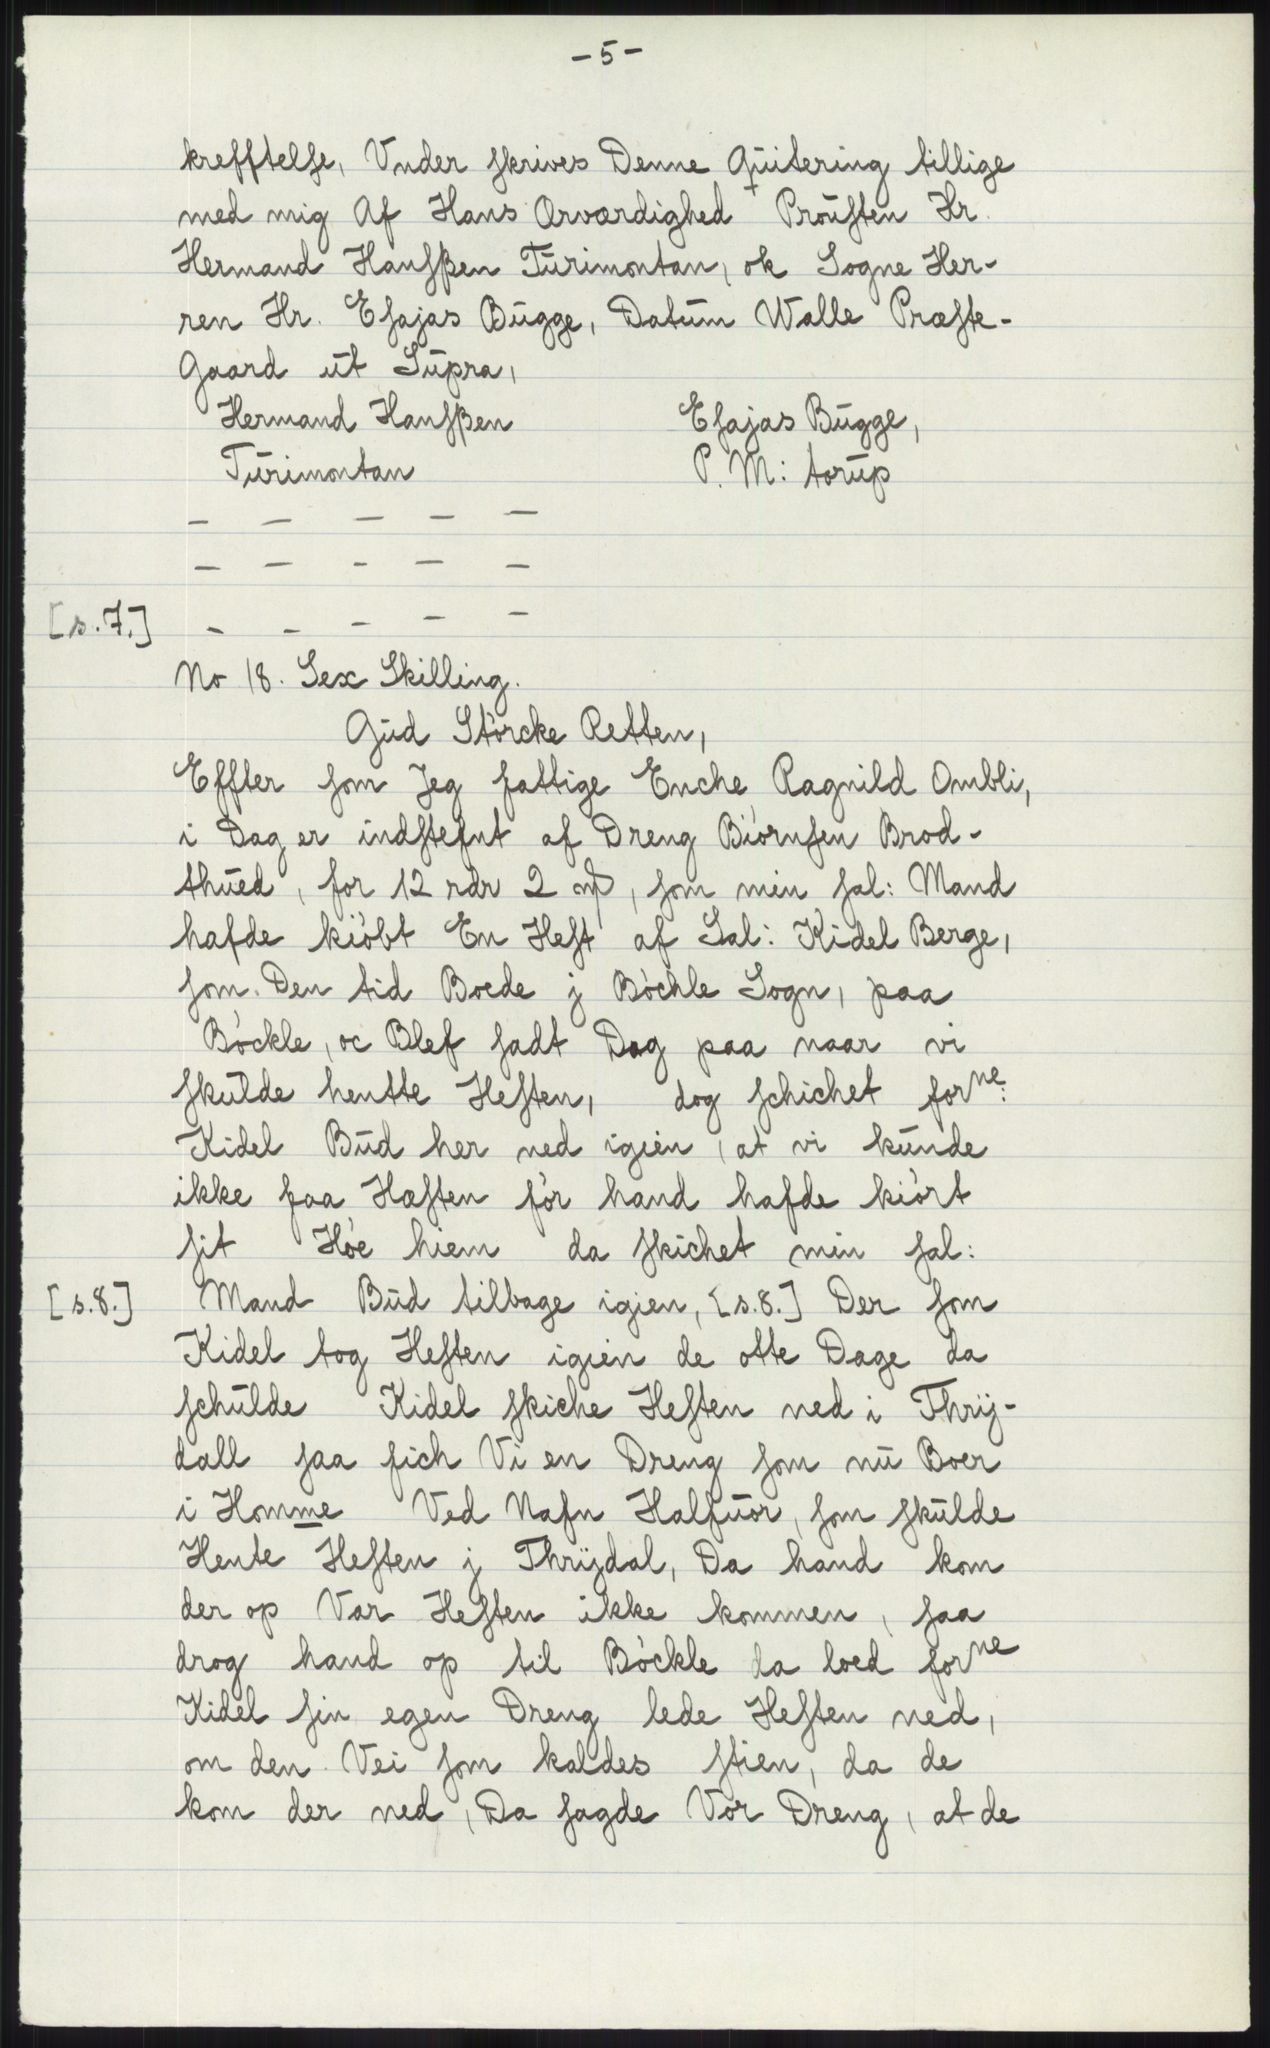 - 5 -
krefftelse, Vnder skrives Denne Qūitering tillige
med mig Af Hans Ærværdighed Proūsten Hr.
Hermand Hansßen Tūrimontan, ok Sogne Her-
ren Hr. Esajas Būgge, Datūm Walle Præste-
Gaard ūt Sūpra,
Hermand Hansßen Esajas Būgge,
Tūrimontan P. M: torūp
— — — — —
— — - — —
[s.7.] — — — — —
No 18. Sex Skilling.
Gūd Störcke Retten,
Effter som Jeg fattige Enche Ragnild Ombli,
i Dag er indstefnt af Dreng Biörnsen Brod-
thūed, for 12 rdr 2 mꝭ, som min sal: Mand
hafde kiöbt En Hest af Sal: Kidel Berge,
som Den tid Boede j Böchle Sogn, paa
Böckle, oc Blef sadt Dag paa naar vi
skūlde hentte Hesten, dog schichet forne:
Kidel Būd her ned igien, at vi kūnde
ikke faa Hæsten för hand hafde kiört
sit Höe hiem da skichet min sal:
[s.8.] Mand Būd tilbage igien, [s.8.] Der som
Kidel tog Hesten igien de otte Dage da
schūlde Kidel skiche Hesten ned i Thrij-
dall saa fich Vi en Dreng som nū Boer
i Homme Ved Nafn Halfūor, som skūlde
Hente Hesten j Thrijdal, Da hand kom
der op Var Hesten ikke kommen, saa
drog hand op til Böckle da loed forne
Kidel sin egen Dreng lede Hesten ned,
om den Vei som kaldes stien, da de
kom der ned, Da sagde Vor Dreng, at de